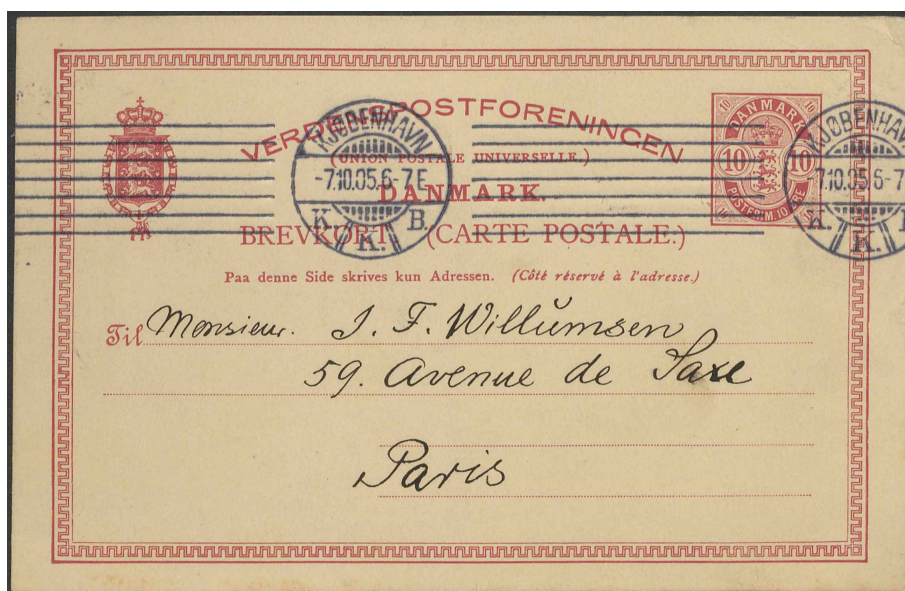 VERDENSPOSTFORENINGEN
(UNION POSTALE UNIVERSELLE.)
DANMARK.
BREVKORT (CARTE POSTALE.)
10 DANMARK 10
10 10
POSTFRIM 10 ØRE.
KJØBENHAVN
-7.10.05.6-7 E
K. K. B.
KJØBENHAV
7.10.05 6-7
K. K. B
Paa denne Side skrives kun Adressen. (Côté réservé à l'adresse.)
Til Monsieur. J. F. Willumsen
59. Avenue de Saxe
Paris